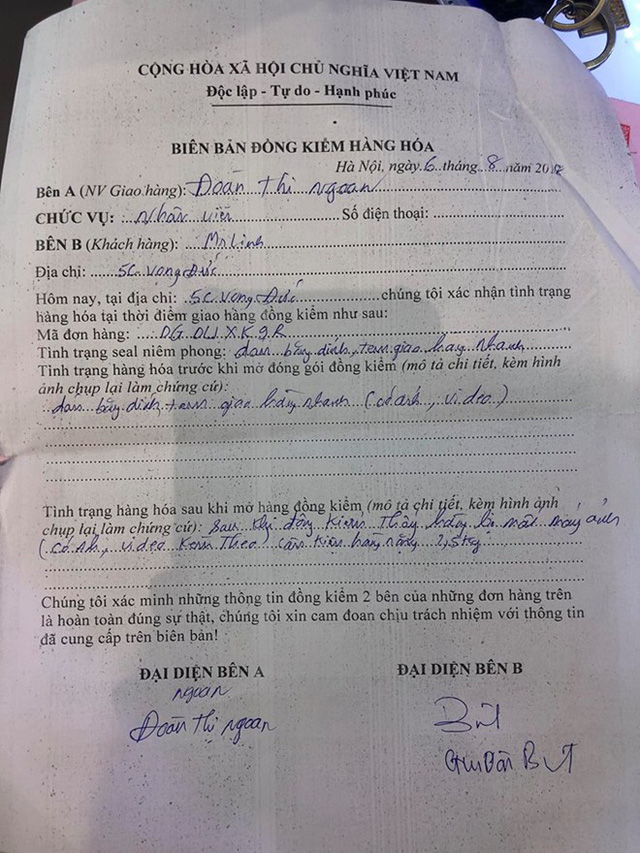 CỘNG HÒA XÃ HỘI CHỦ NGHĨA VIỆT NAM
Độc lập - Tự do - Hạnh phúc
BIÊN BẢN ĐỒNG KIỂM HÀNG HÓA
Hà Nội, ngày 6 tháng 8 năm
Bên A (NV Giao hàng): Đoàn Thị ngoan
CHỨC VỤ: Nhân viên Số điện thoại:
BÊN B (Khách hàng): Mr Linh
Địa chỉ: 5C Vọng Đức
Hôm nay, tại địa chỉ: 5C Vọng Đức chúng tôi xác nhận tình trạng
hàng hóa tại thời điểm giao hàng đồng kiểm như sau:
Mã đơn hàng:
Tình trạng seal niêm phong: dán băng dính, tem giao hàng nhanh
Tình trạng hàng hóa trước khi mở đóng gói đồng kiểm (mô tả chi tiết, kèm hình
ảnh chụp lại làm chứng cứ):
dán băng dính tem giao hàng nhanh (có ảnh, video)
Tình trạng hàng hóa sau khi mở hàng đồng kiểm (mô tả chi tiết, kèm hình ảnh
chụp lại làm chứng cứ): Sau khi đồng kiểm thấy hàng bị mất máy ảnh
(có ảnh, video kèm theo) cân kiện hàng nặng 2,5kg
Chúng tôi xác minh những thông tin đồng kiểm 2 bên của những đơn hàng trên
là hoàn toàn đúng sự thật, chúng tôi xin cam đoan chịu trách nhiệm với thông tin
đã cung cấp trên biên bản!
ĐẠI DIỆN BÊN A ĐẠI DIỆN BÊN B
ngoan
Đoàn Thị ngoan